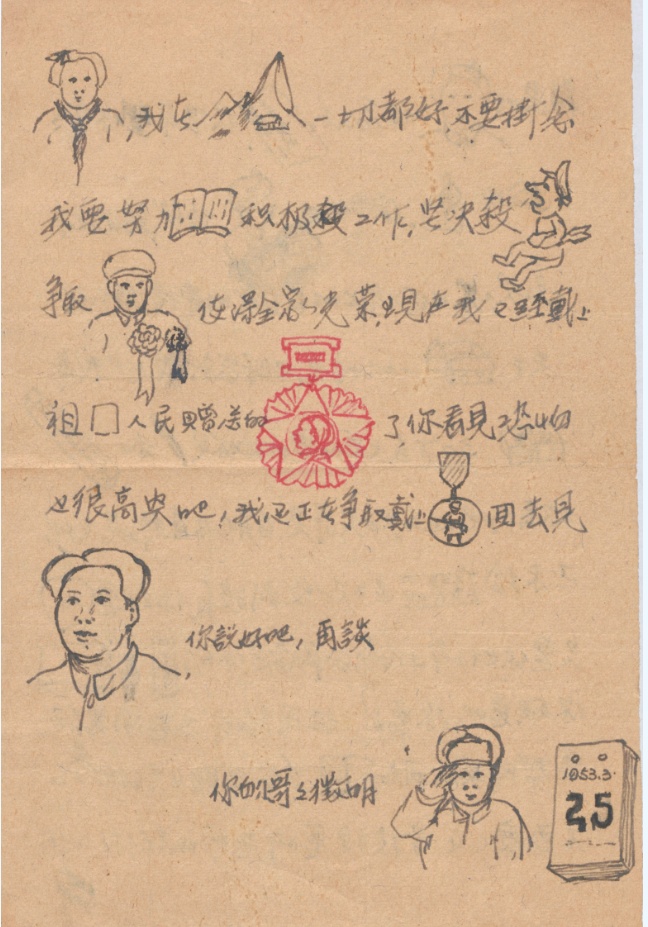 ，我在一切都好，不要掛念
我要努力积极工作，坚决殺
争取 全家光荣，現在我已經戴上
祖 人民赠送的 了你看見恐怕
也很高兴吧，我还正在争取戴上 回去見
你說好吧，再談
你的哥々徵明
1953.3.
25